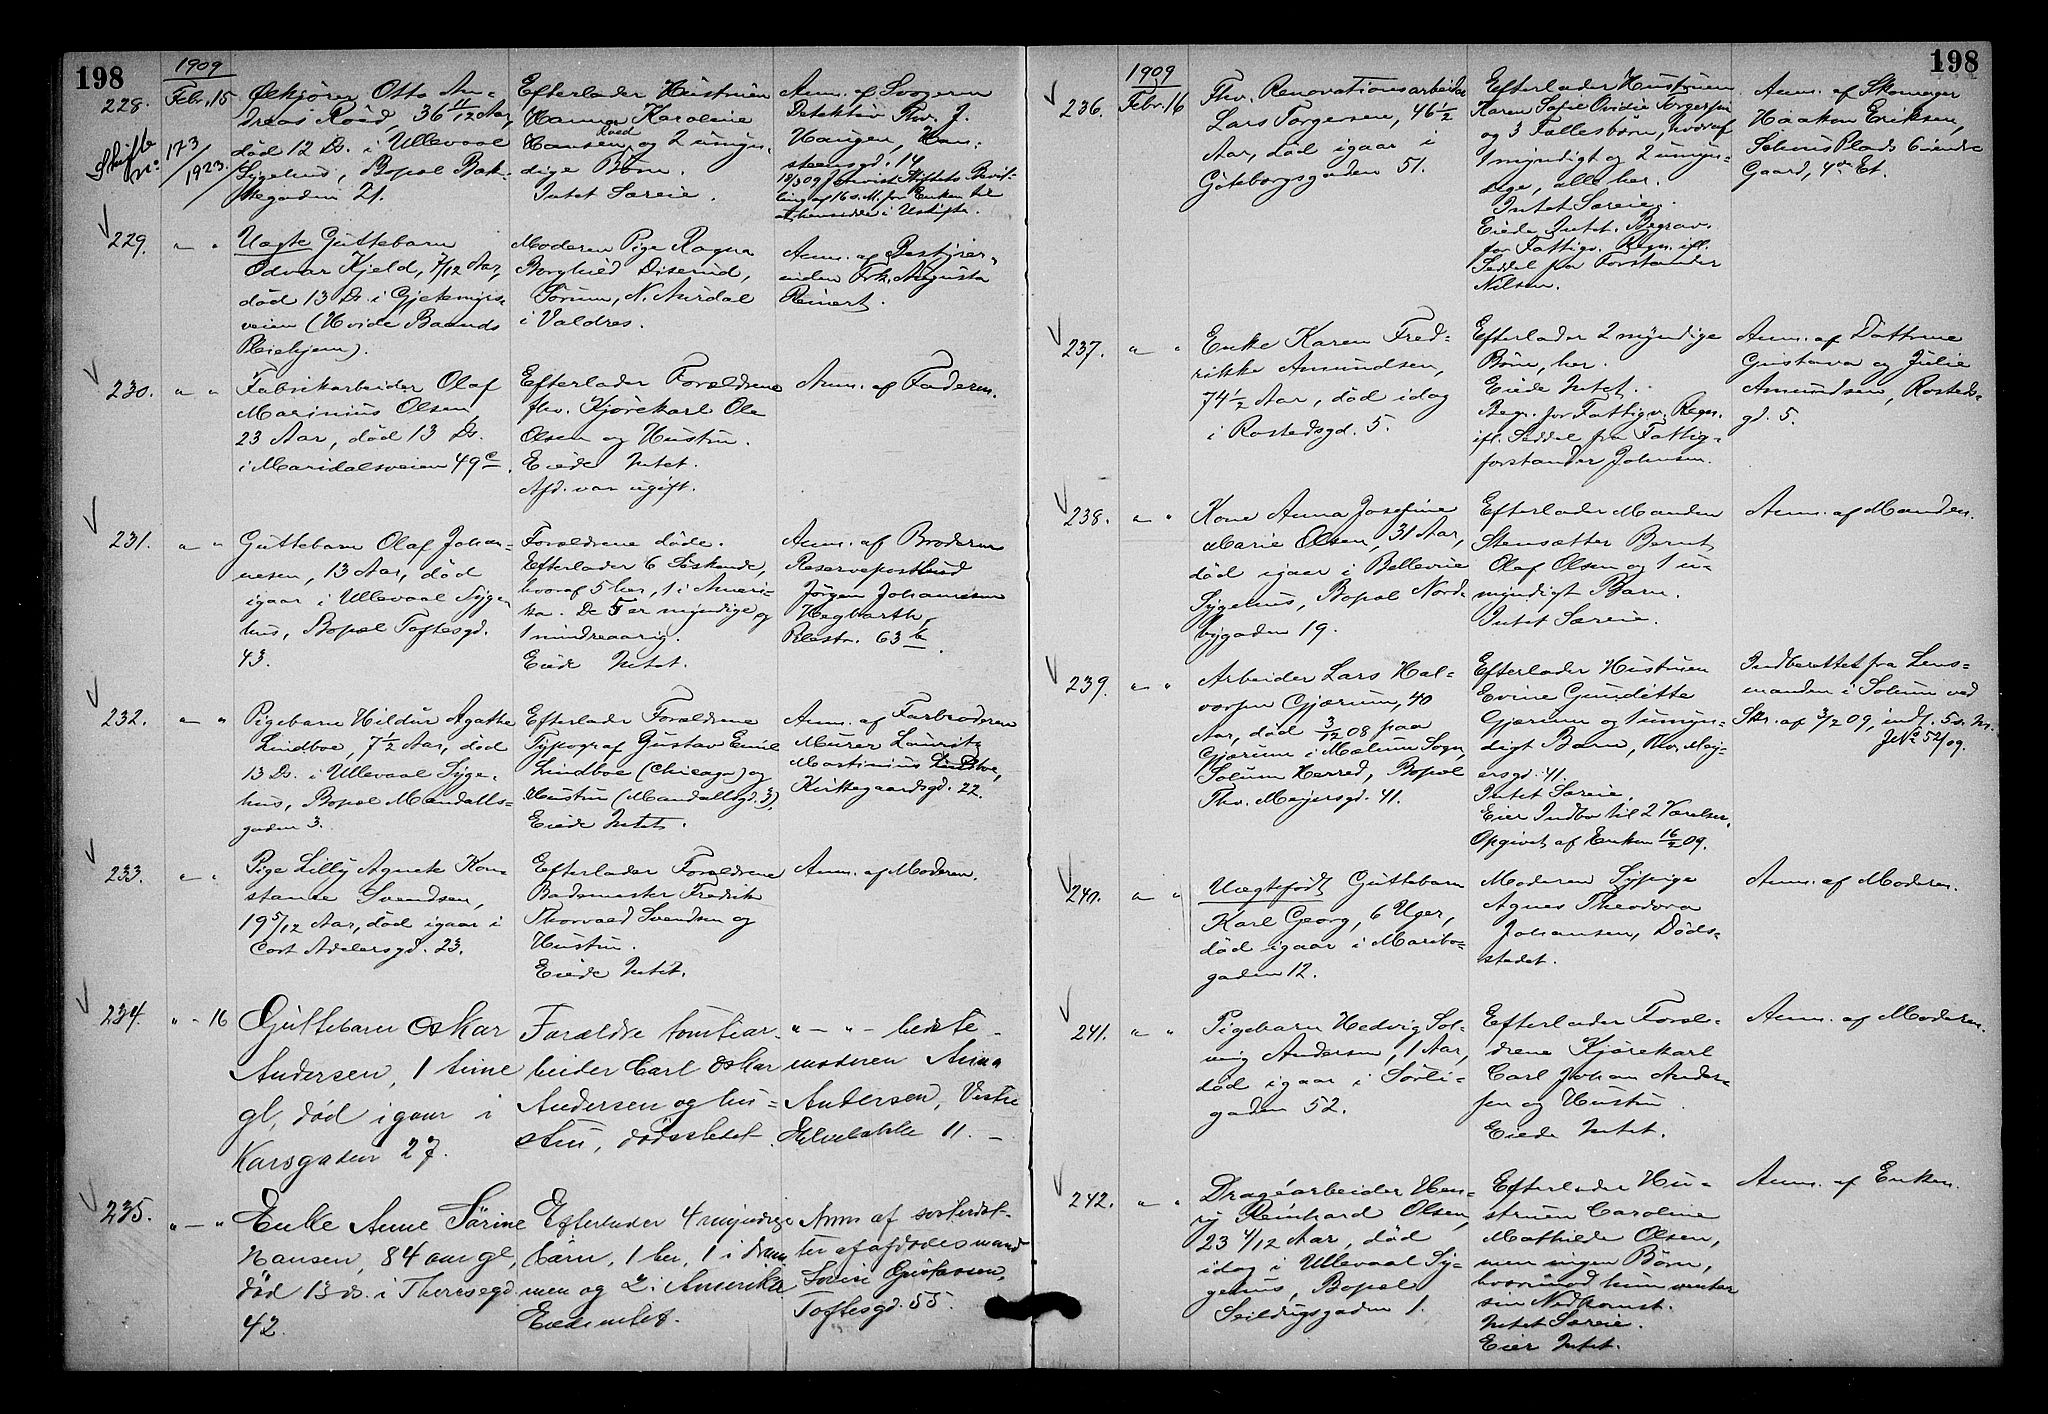 198
1909
228. Febr. 15
Skifte no. 173/1923.
Ølkjører Otto An-
dreas Roed, 36 11/12 Aar,
død 12 Ds. i Ullevaal
Sygehus, Bopæl Bak-
kegaden 21.
Efterlader Hustruen
Hanna Karoline
Hansen Roed og 2 umyn-
dige Børn.
Intet Særeie.
Anm. af Svogeren
Detektiv Thv. J.
Haugen, Han-
steensgd. 14
229. " "
Uægte Guttebarn
Odvar Kjeld, 7/12 Aar,
død 13 Ds. i Gjetemyrs-
veien (Hvide Baands
Pleiehjem).
Moderen Pige Ragna
Borghild Diserud,
N. Aurdal
i Valdres.
Anm. af Bestyrer-
inden Frk. Augusta
Reinert.
230. " "
Fabrikarbeider Olaf
Marinius Olsen
23 Aar, død 13 Ds.
i Maridalsveien 49 c.
Efterlader Forældrene
fhv. Kjørekarl Ole
Olsen og Hustru.
Eiede Intet.
Afd. var ugift.
Anm. af Faderen.
231. " "
Guttebarn Olaf Johan-
nesen, 13 Aar, død
igaar i Ullevaal Syge-
hus, Bopæl Toftesgd.
43.
Forældrene døde.
Efterlader 6 Søskende,
hvoraf 5 her, 1 i Ameri-
ka. De 5 er myndige, og
1 mindreaarig.
Eiede Intet.
Anm. af Broderen
Reservepostbud
Jørgen Johannesen
63 b.
232. " "
Pigebarn Hildur Agathe
Lindboe, 7 1/2 Aar, død
13 Ds. i Ullevaal Syge-
hus, Bopæl Mandalls-
gaden 3.
Efterlader Forældrene
Typograf Gustav Emil
Lindboe (Chicago) og
Hustru (Mandallsgd. 3).
Eiede Intet.
Anm. af Farbroderen
Murer Lauritz
Martinius Lindboe,
Kirkegaardsgd. 22.
233. " "
Pige Lilly Agnete Kon-
stanse Svendsen,
19 5/12 Aar, død igaar i
Cort Adelersgd. 23.
Efterlader Forældrene
Bademester Fredrik
Thorvald Svendsen og
Hustru.
Eiede Intet.
Anm. af Moderen.
234. " - 16
Guttebarn Oskar
Andersen, 1 time
gl, død igaar i
Korsgaden 27.
Forældre tomtear-
beider Carl Oskar
Andersen og hu-
stru, dødsstedet
" - " - bedste-
moderen Anna
Andersen, Vestre
Elvebakke 11. -
235. " - "
Enke Anne Sørine
Hansen, 84 aar gl,
død 13 ds. i Theresegd
42.
Efterlader 4 myndige
børn, 1 her, 1 i Dram
men og 2 i Amerika
Eiede intet.
Anm af søsterdat-
ter af afdødes mand
Lovise Gustavsen,
Toftesgd. 55.
198
1909
236. Febr. 16
Fhv. Renovationsarbeider
Lars Torgersen, 46 1/2
Aar, død igaar i
Göteborgsgaden 51.
Efterlader Hustruen
Karen Sofie Ovidia Torgersen
og 3 Fællesbørn, hvoraf
1 myndigt og 2 umyn-
dige, alle her.
Intet Særeie.
Eiede Intet. Begrav.
for Fattigv. Regn. ifl.
Seddel fra Forstander
Nilsen.
Anm. af Skomager
Haakon Eriksen,
Schous Plads 6 indre
Gaard, 4de Et.
237. " "
Enke Karen Fred-
rikke Amundsen,
74 1/2 Aar, død idag
i Rostedsgd. 5.
Efterlader 2 myndige
Børn, her.
Eiede Intet.
Begr. for Fattigv. Regn.
ifl. Seddel fra Fattig-
forstander Johnsen.
Anm. af Døttrene
Gustava og Julie
Amundsen, Rosteds-
gd. 5.
238. " "
Kone Anna Josefine
Marie Olsen, 31 Aar,
død igaar i Bellevue
Sygehus, Bopæl Nord-
bygaden 19.
Efterlader Manden
Stensætter Bernt
Olaf Olsen og 1 u-
myndigt Barn.
Intet Særeie.
Anm. af Manden.
239. " "
Arbeider Lars Hal-
vorsen Gjærum, 40
Aar, død 3/12 08 paa
Gjærum i Mælum Sogn,
Solum Herred, Bopæl
Thv. Meyersgd. 41.
Efterlader Hustruen
Evine Gunditte
Gjærum og 1 umyn-
digt Barn, Thv. Mey-
ersgd. 41.
Intet Særeie.
Eier Indbo til 2 Værelser.
Opgivet af Enken 16/2 09.
Indberettet fra Lens-
manden i Solum ved
Skr. af 3/2 09, indf. 5 ds.
JNo 52/09.
240. " "
Uægtefødt Guttebarn
Karl Georg, 6 Uger,
død igaar i Maribo-
gaden 12.
Moderen Sypige
Agnes Theodora
Johansen, Døds-
stedet.
Anm. af Moderen.
241. " "
Pigebarn Hedvig Sol-
veig Andersen, 1 Aar,
død igaar i Sörli-
gaden 52.
Efterlader Foræl-
drene Kjørekarl
Carl Johan Ander-
sen og Hustru.
Eiede Intet.
Anm. af Moderen.
242. " "
Dragéarbeider Hen-
ry Reinhard Olsen,
23 4/12 Aar, død
idag i Ullevaal Sy-
gehus, Bopæl
Seildugsgaden 1.
Efterlader Hu-
struen Caroline
Mathilde Olsen,
men ingen Børn,
hvorimod hun venter
sin Nedkomst.
Intet Særeie.
Eier Intet.
Anm. af Enken.